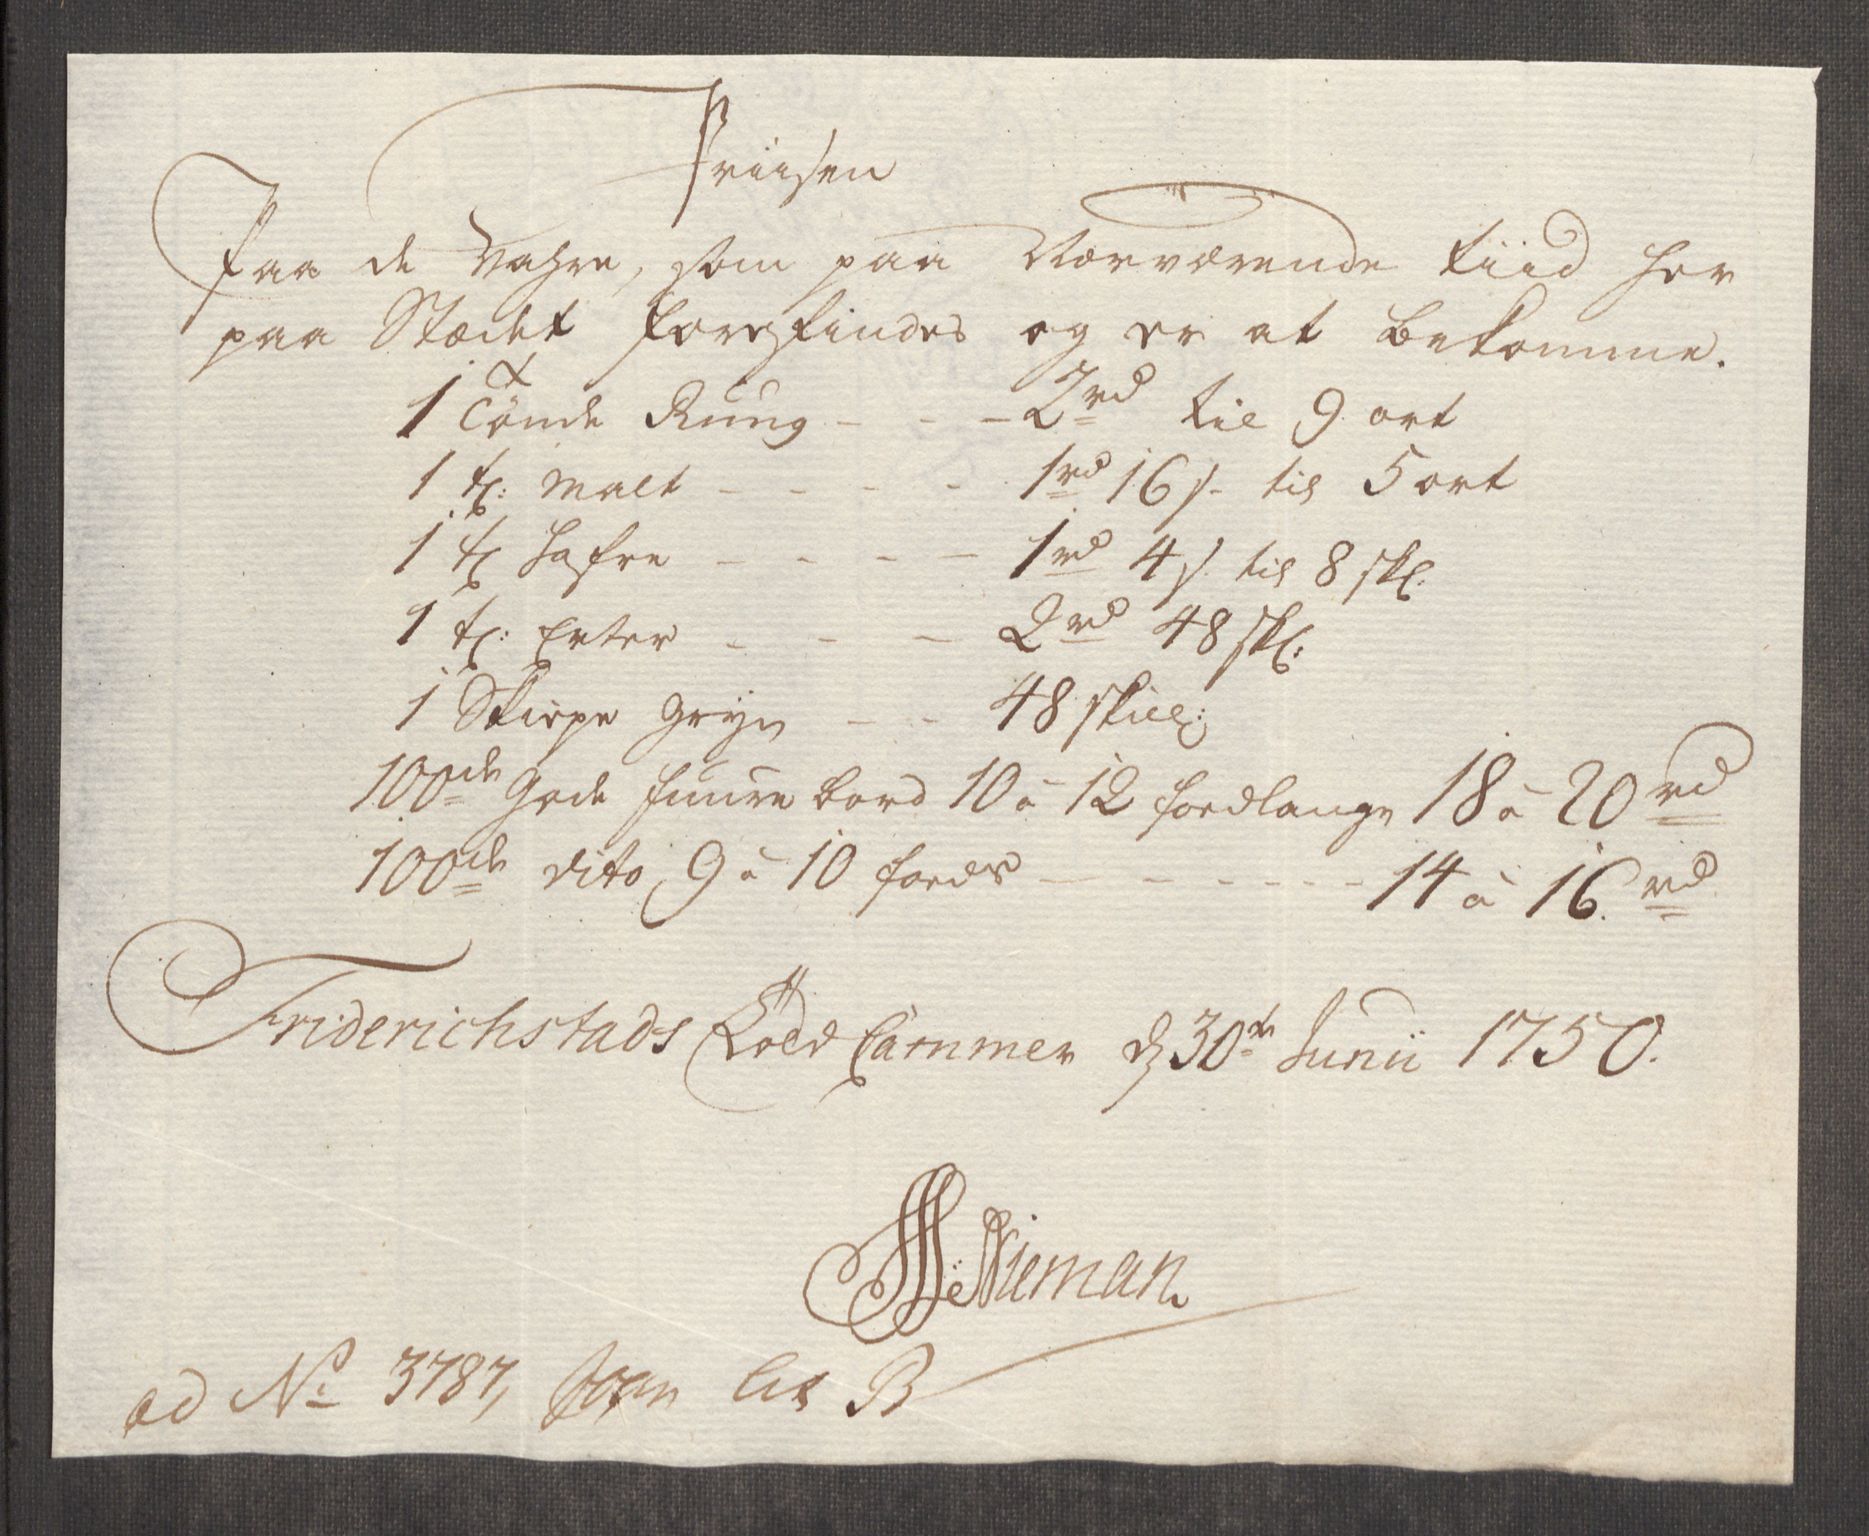 Priisen
Paa de Vahre, som paa Nærværende tiid her
paa Stædet forefindes og er at bekomme.
1 Tönde Rung - - - 2 rd til 9 ort
1 tl: Malt - - - - 1 rd 16 s. til 5 ort
1 tl Hafre - - - - 1 rd 4 s. til 8 skl:
1 tl: Erter - - - 2 rd 48 skl:
1 Skiepe gryn - - 48 skill:
100de gode fuure bord 10 à 12 foed lange 18 à 20 rd
100de dito 9 à 10 foeds - - - - - - 14 à 16. rd
Friderichstads Told Cammer d 30te Junii 1750.
Nieman.
ad No 3787, lit B